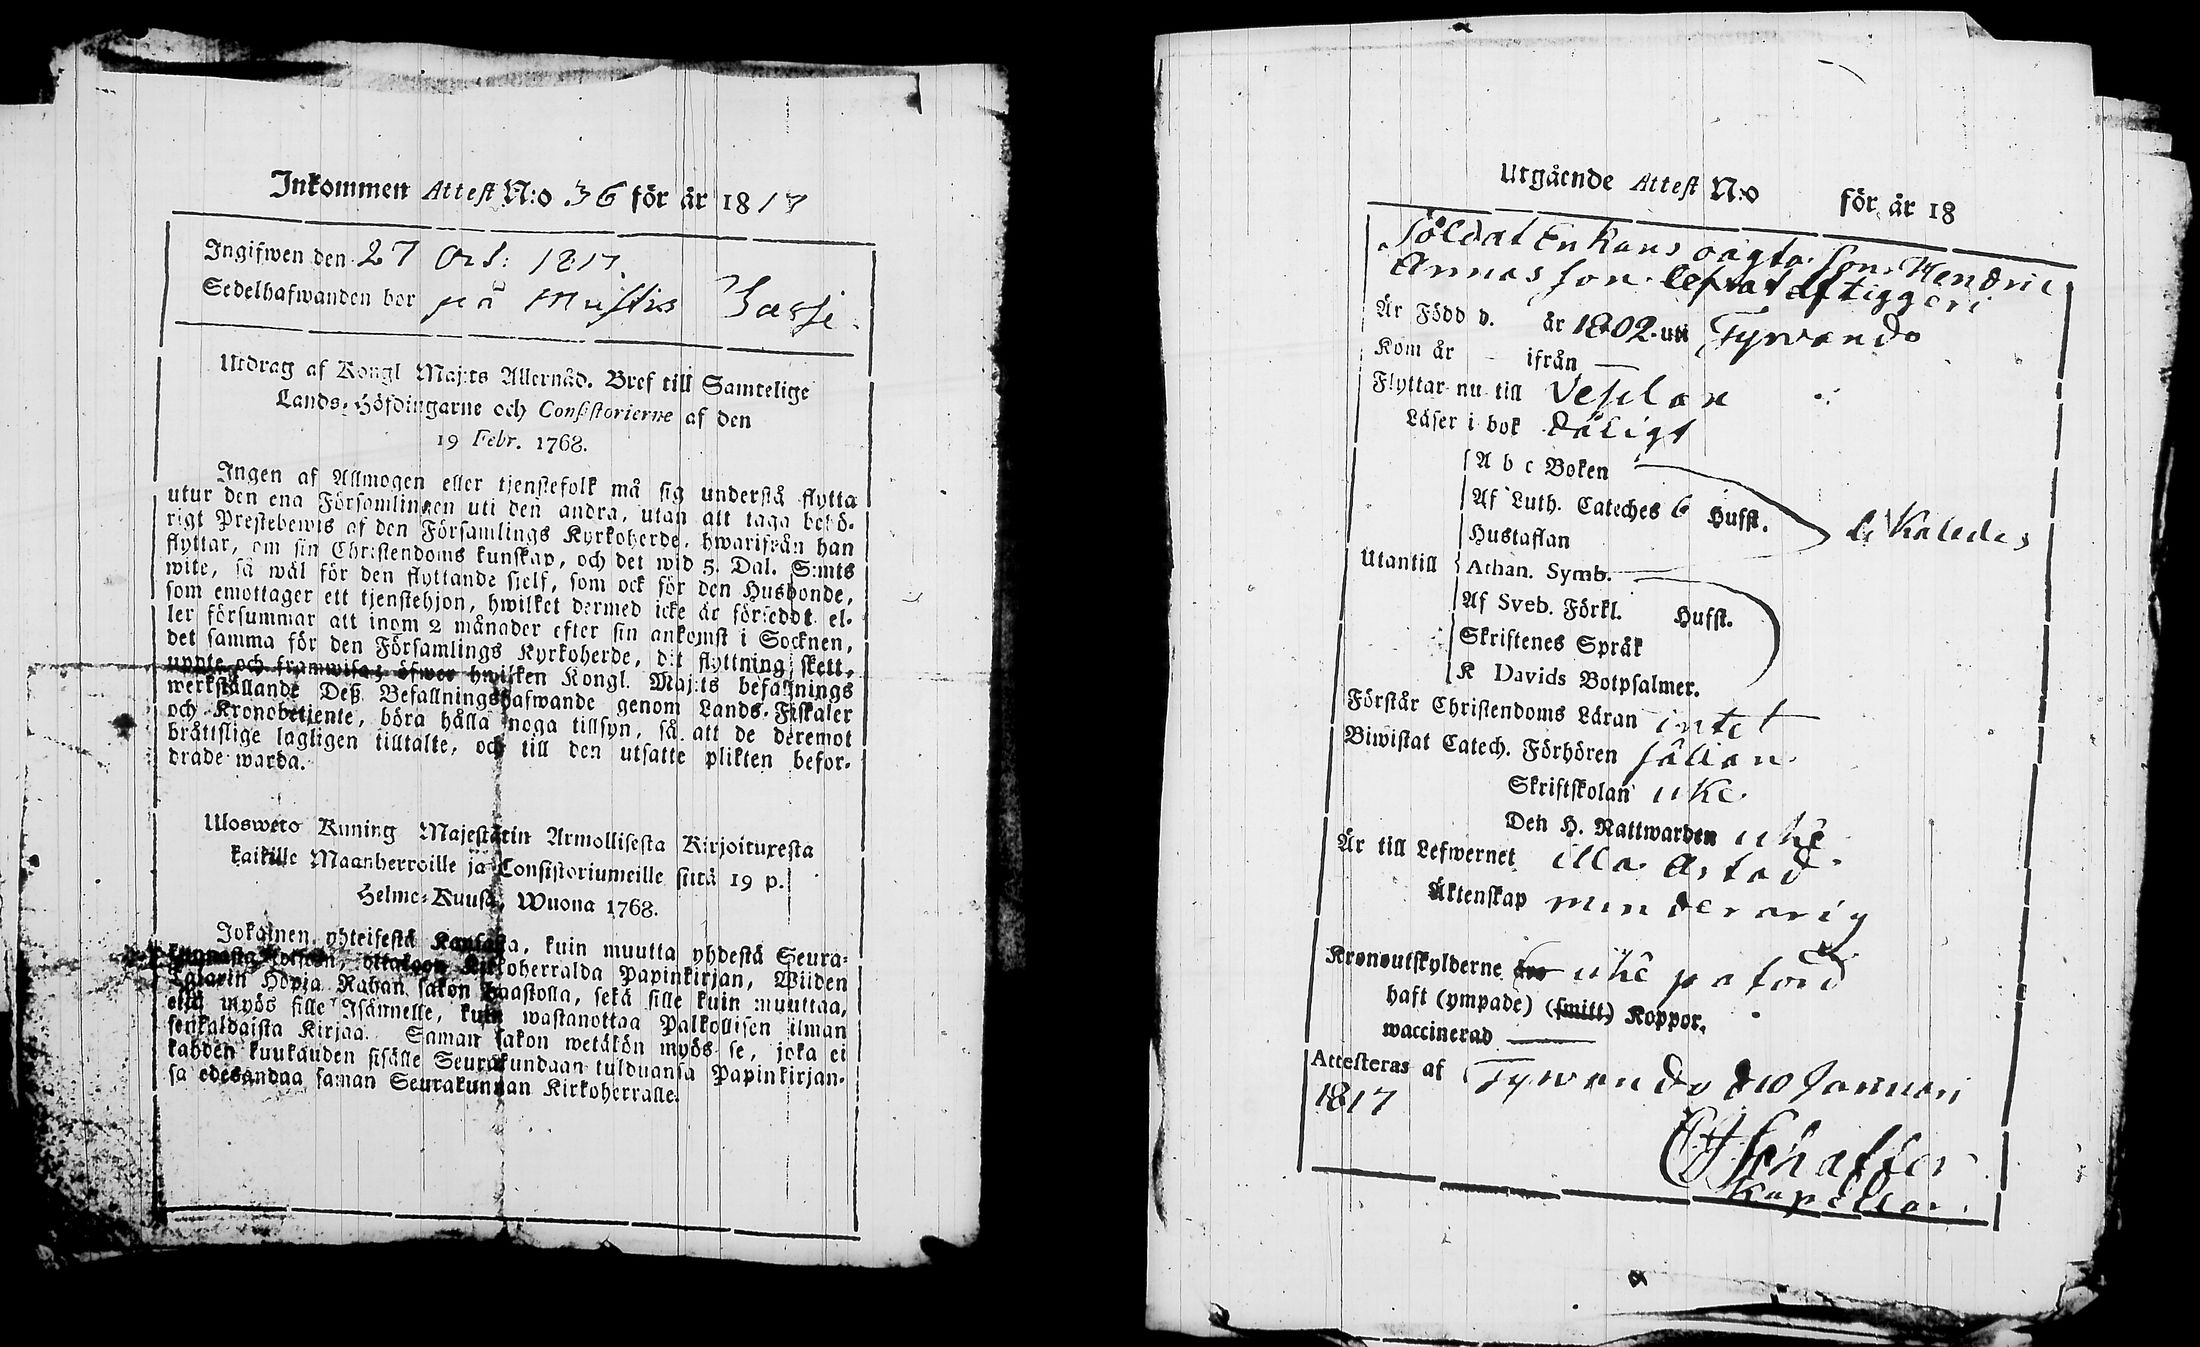 Inkommen Attest N:o 36 för år 1817
Ingifwen den 27 Oct: 1817.
Sedelhafwanden bor på Mustis Jassi.
Utdrag af Kongl Maj:ts Allernåd. Bref till Samtelige
Lands-Höfdingarne och Consistorierne af den
19 Febr. 1768.
Ingen af Allmogen eller tjenstefolk må sig understå flytta
utur den ena Församlingen uti den andra, utan att taga behö-
rigt Prestebewis af den Församlings Kyrkoherde, hwarifrån han
flyttar, om sin Christendoms kunskap, och det wid 5. Dal. S:mts
wite, så wäl för den flyttande sielf, som ock för den Husbonde,
som emottager ett tjenstehjon, hwilket dermed icke är förseddt el-
ler försummar att inom 2 månader efter sin ankomst i Socknen,
det samma för den Församlings Kyrkoherde, dit flyttning skett,
uppte och framwisa; öfwer hwilken Kongl. Maj:ts befallnings
werkställande Deß Befallningshafwande genom Lands-Fiskaler
och Kronobetjente, böra hålla noga tillsyn, så att de deremot
bråttslige lagligen tilltalte, och till den utsatte plikten befor-
drade warda.
Ulosweto Kuning Majestätin Armollisesta Kirjoituxesta
kaikille Maanherroille ja Consistoriumeille siitä 19 p.
Helme-Kuusa, Wuona 1768.
Jokainen yhteisestä Kansasta, kuin muutta yhdestä Seura-
kunnasta toiseen, ottakoon Kirkoherralda Papinkirjan, Wiiden
Talarin Hopia Rahan sakon haastolla, sekä sille kuin muuttaa,
että myös sille Isännelle, kuin wastanottaa Palkollisen ilman
senkaldaista Kirjaa. Saman sakon wetäkön myös se, joka ei
kahden kuukauden sisälle Seurakundaan tulduansa Papinkirjan-
sa edesandaa saman Seurakunnan Kirkoherralle.
Utgående Attest N:o för år 18
Soldat Enkans oägta son Hendric
Annasson lefvat af tiggeri
Är Född d. år 1802 uti Tyrvändö
Kom år — ifrån —
Flyttar nu till Vesilax
Läser i bok dåligt
A b c Boken
Af Luth. Cateches 6 Hufst.
likaledes
Hustaflan
Utantill
Athan. Symb.
Af Sveb. Förkl. Hufst.
Skriftenes Språk
K Davids Botpsalmer.
Förstår Christendoms Läran intet
Biwistat Catech. Förhören sällan
Skriftskolan icke
Den H. Nattwarden icke
Är till Lefwernet illa artad
Äktenskap minderarig
Kronoutskylderne äro icke påförd
haft (ympade) (smitt) Koppor.
waccinerad —
Attesteras af Tyrvändö d 10 Januari
1817
Schaffer
Kapellan.